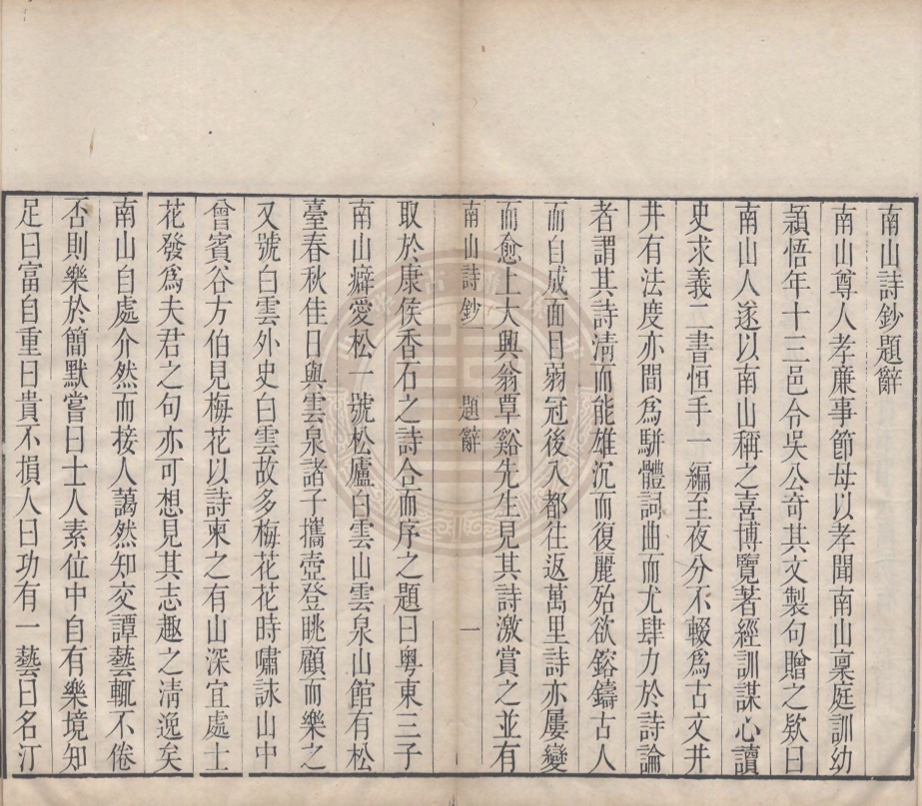 南山詩鈔題辭
南山尊人孝廉事節母以孝聞南山稟庭訓幼
穎悟年十三邑令吳公奇其文製句贈之欵曰
南山人遂以南山稱之喜博覽著經訓謀心讀
史求義二書恒手一編至夜分不輟爲古文井
井有法度亦間爲駢體詞曲而尤肆力於詩論
者謂其詩淸而能雄沉而復麗殆欲鎔鑄古人
而自成面目弱冠後入都往返萬里詩亦屢變
而愈上大興翁覃谿先生見其詩激賞之並有
南山詩鈔 題辭 一
取於康侯香石之詩合而序之題曰粤東三子
南山癖愛松一號松廬白雲山雲泉山館有松
臺春秋佳日與雲泉諸子攜壺登眺顧而樂之
又號白雲外史白雲故多梅花花時嘯詠山中
曾賓谷方伯見梅花以詩柬之有山深宜處士
花發爲夫君之句亦可想見其志趣之淸逸矣
南山自處介然而接人藹然知交譚藝輒不倦
否則樂於簡默嘗曰士人素位中自有樂境知
足曰富自重曰貴不損人曰功有一藝曰名汀